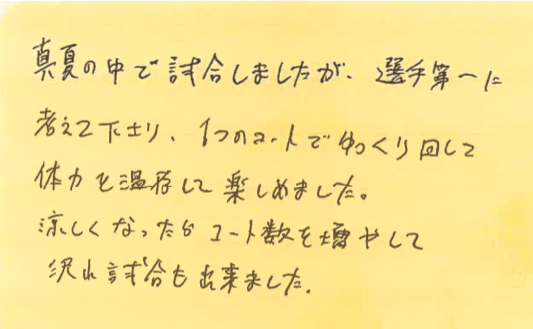 真夏の中で試合しましたが、選手第一に
考えて下さり、1つのコートでゆっくり回して
体力を温存して楽しめました。
涼しくなったらコート数を増やして
沢山試合も出来ました。